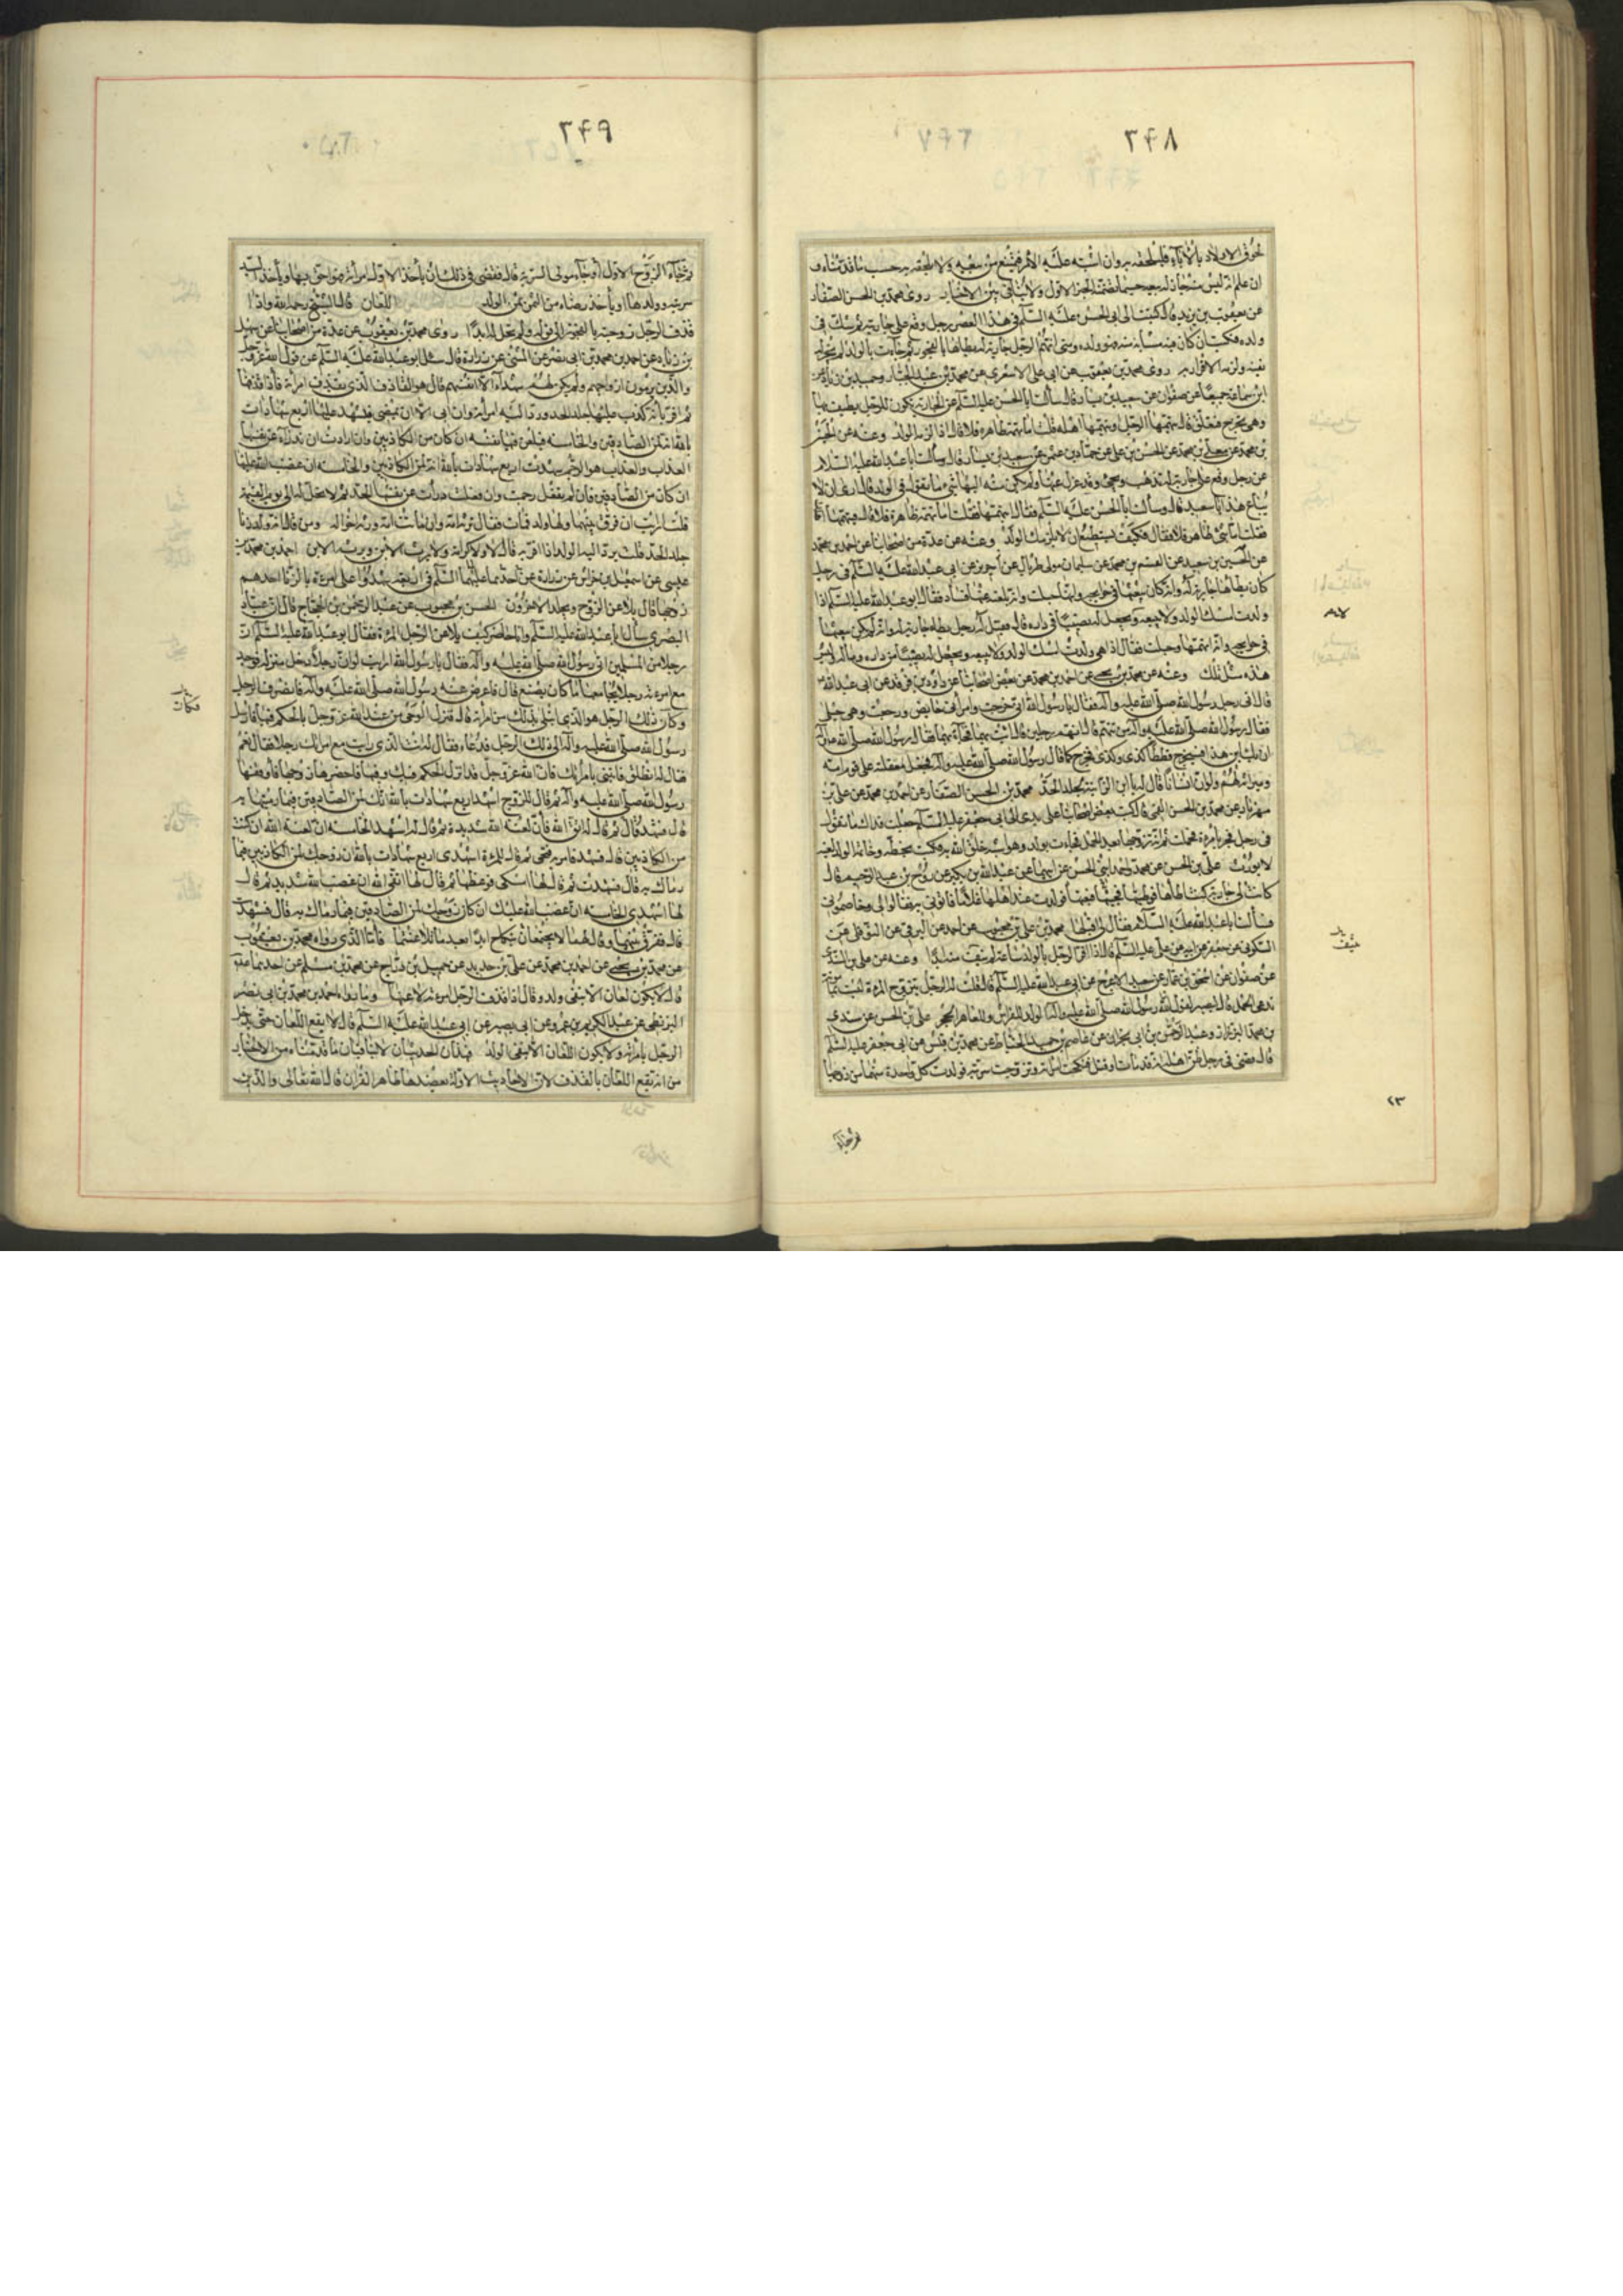 ٣۴٨
لحوق الاولاد بالآباء فليلحقه به وان اشتبه عليه الأمر فيمتنع من بيعه ولا يلحقه به حسب ما قدمناه و
ان علم انه ليس منه جاز له بيعه حسبما تضمنه الخبر الاول ولا تنافى بين الاخبار روى محمد بن الحسن الصفار
عن يعقوب بن يزيد قال كتبت الى ابى الحسن عليه السلم فى هذا العصر رجل وقع على جاريته ثم شك فى
ولده فكتب ان كان فيه مشابه منه فهو ولده ومتى اتهم الرجل جارية له يطاها بالفجور ثم جاءت بالولد لم يجز له
نفيه ولزمه الاقرار به روى محمد بن يعقوب عن ابى على الاشعرى عن محمد بن عبد الجبار وحميد بن زياد عن
ابن سماعة جميعا عن صفوان عن سعيد بن يسار قال سألت ابا الحسن عليه السلم عن الجارية تكون للرجل يطيف بها
وهى تخرج فتعلق قال يتهمها الرجل ويتهمها اهله قلت اما تهمة ظاهرة فلا قال اذا لزمه الولد وعنه عن الحسين
بن محمد عن معلى بن محمد عن الحسن بن على عن حماد بن عثمن عن سعيد بن يسار قال سألت ابا عبد الله عليه السلام
عن رجل وقع على جارية له تذهب وتجىء وقد عزل عنها ولم يكن منه اليها شىء ما تقول فى الولد قال ارى ان لا
يباع هذا يا سعيد قال وسألت ابا الحسن عليه السلم فقال ايتهمها فقلت اما تهمة ظاهرة فلا قال فيتهمها اهلك
فقلت اما شىء ظاهر فلا فقال فكيف تستطيع ان لا يلزمك الولد وعنه عن عدة من اصحابنا عن احمد بن محمد
عن الحسين بن سعيد عن القسم بن محمد عن سليمان مولى طربال عن حريز عن ابى عبد الله عليه السلم فى رجل
كان يطا جارية له وانه كان يبعثها فى حوايجه وانها حبلت وانه بلغه عنها فساد فقال ابو عبد الله عليه السلم اذا
ولدت امسك الولد ولا يبيعه ويجعل له نصيبا فى داره قال فقيل له رجل يطا جارية له وانه لم يكن يبعثها
فى حوايجه وانه اتهمها وحبلت فقال اذا هى ولدت امسك الولد ولا يبيعه ويجعل له نصيبا من داره وماله وليس
هذه مثل تلك وعنه عن محمد بن يحيى عن احمد بن محمد عن بعض اصحابنا عن داود بن فرقد عن ابى عبد الله
قال اتى رجل رسول الله صلى الله عليه وآله فقال يا رسول الله انى خرجت وامرأتى حايض ورجعت وهى حبلى
فقال رسول الله صلى الله عليه وآله من تتهم قال اتهم رجلين قال ائت بهما فجاء بهما فقال رسول الله صلى الله عليه وآله
ان يك ابن هذا فيخرج قططا كذى وكذى فخرج كما قال رسول الله صلى الله عليه وآله فجعل معقلته على قوم امه
وميراثه لهم ولو ان انسانا قال له يا ابن الزانية يجلد الحد محمد بن الحسن الصفار عن احمد بن محمد عن على بن
مهزيار عن محمد بن الحسن القمى قال كتب بعض اصحابنا على يدى الى ابى جعفر عليه السلم جعلت فداك ما تقول
فى رجل فجر بامرءة فحملت ثم انه تزوجها بعد الحمل فجاءت بولد وهو اشبه خلق الله به فكتب بخطه وخاتمه الولد لغية
لا يورث على بن الحسن عن محمد واحمد ابنى الحسن عن ابيهما عن عبد الله بن بكير عن روح بن عبد الرحيم قال
كانت لى جارية كنت اطأها
فسألت ابا عبد الله عليه السلم فقال لى اقبلها محمد بن على بن محبوب عن احمد عن البرقى عن النوفلى عن
السكونى عن جعفر عن ابيه عن على عليه السلم قال اذا اقر الرجل بالولد ساعة لم ينتف منه ابدا وعنه عن على بن السندى
عن صفوان عن اسحق بن عمار عن سعيد الاعرج عن ابى عبد الله عليه السلم قال قلت له الرجل يتزوج المرءة ليست بمأمونة
تدعى الحمل قال ليصبر لقول رسول الله صلى الله عليه وآله الولد للفراش وللعاهر الحجر على بن الحسن عن سندى
بن محمد البزاز وعبد الرحمن بن ابى نجران عن عاصم بن حميد الحناط عن محمد بن قيس عن ابى جعفر عليه السلم
قال قضى فى رجل ظن اهله انه قد مات او قتل فنكحت امرأته وتزوجت سريته فولدت كل واحدة منهما من زوجها
ثم جاء
٢٣
٣۴٩
ثم جاء الزوج الاول او جاء مولى السرية قال فقضى فى ذلك ان يأخذ الاول امرأته فهو احق بها ويأخذ السيد
سريته وولدها او يأخذ رضاه من الثمن ثمن الولد اللعان قال الشيخ رحمه الله واذا
قذف الرجل زوجته بالفجور الى قوله ولم تحل له ابدا روى محمد بن يعقوب عن عدة من اصحابنا عن سهل
بن زياد عن احمد بن محمد بن ابى نصر عن المثنى عن زرارة قال سئل ابو عبد الله عليه السلم عن قول الله عز وجل
والذين يرمون ازواجهم ولم يكن لهم شهداء الا انفسهم قال هو القاذف الذى يقذف امرأته فاذا قذفها
ثم اقر بأنه كذب عليها جلد الحد وردت اليه امرأته وان ابى الا ان يمضى فيشهد عليها اربع شهادات
بالله انه لمن الصادقين والخامسة فيلعن فيها نفسه ان كان من الكاذبين وان ارادت ان تدرأ عن نفسها
العذاب والعذاب هو الرجم شهدت اربع شهادات بالله انه لمن الكاذبين والخامسة ان غضب الله عليها
ان كان من الصادقين فان لم تفعل رجمت وان فعلت درأت عن نفسها الحد ثم لا تحل له الى يوم القيمة
قلت ارايت ان فرق بينهما ولها ولد فمات فقال ترثه امه وان ماتت امه ورثه اخواله ومن قال انه ولد زنا
جلد الحد قلت يرد اليه الولد اذا اقر به قال لا ولا كرامة ولا يرث الابن ويرثه الابن احمد بن محمد بن
عيسى عن اسمعيل بن خراش عن زرارة عن احدهما عليهما السلم فى اربعة شهدوا على امرءة بالزنا احدهم
زوجها قال يلاعن الزوج ويجلد الاخرون الحسن بن محبوب عن عبد الرحمن بن الحجاج قال ان عباد
البصرى سأل ابا عبد الله عليه السلم وانا حاضر كيف يلاعن الرجل المرءة فقال ابو عبد الله عليه السلم ان
رجلا من المسلمين اتى رسول الله صلى الله عليه وآله فقال يا رسول الله ارايت لو ان رجلا دخل منزله فوجد
مع امرءته رجلا يجامعها ما كان يصنع قال فاعرض عنه رسول الله صلى الله عليه وآله فانصرف الرجل
وكان ذلك الرجل هو الذى ابتلى بذلك من امرأته قال فنزل الوحى من عند الله عز وجل بالحكم فيها فارسل
رسول الله صلى الله عليه وآله الى ذلك الرجل فدعاه فقال له انت الذى رايت مع امرأتك رجلا فقال نعم
فقال له انطلق فاتنى بامرأتك فان الله عز وجل قد انزل الحكم فيك وفيها فاحضرها زوجها فاوقفها
رسول الله صلى الله عليه وآله ثم قال للزوج اشهد اربع شهادات بالله انك لمن الصادقين فيما رميتها به
قال فشهد قال ثم قال له اتق الله فان لعنة الله شديدة ثم قال له اشهد الخامسة ان لعنة الله ان كنت
من الكاذبين قال فشهد فامر به فنحى ثم قال للمرءة اشهدى اربع شهادات بالله ان زوجك لمن الكاذبين فيما
رماك به قال فشهدت ثم قال لها امسكى فوعظها ثم قال لها اتقى الله ان غضب الله شديد ثم قال
لها اشهدى الخامسة ان غضب الله عليك ان كان زوجك لمن الصادقين فيما رماك به قال فشهدت
قال ففرق بينهما وقال لهما لا يجتمعان بنكاح ابدا بعد ما تلاعنتما فأما الذى رواه محمد بن يعقوب
عن محمد بن يحيى عن احمد بن محمد عن على بن حديد عن جميل بن دراج عن محمد بن مسلم عن احدهما
قال لا يكون لعان الا بنفى ولد وقال اذا قذف الرجل امرءته لاعنها وما رواه احمد بن محمد بن ابى نصر
البزنطى عن عبد الكريم بن عمرو عن ابى بصير عن ابى عبد الله عليه السلم قال لا يقع اللعان حتى يدخل
الرجل بامرأته ولا يكون اللعان الا بنفى الولد فهذان الحديثان لا ينافيان ما قدمناه من الاخبار
من انه يقع اللعان بالقذف لان الاحاديث الاولة يعضدها ظاهر القران قال الله تعالى والذين
فكان